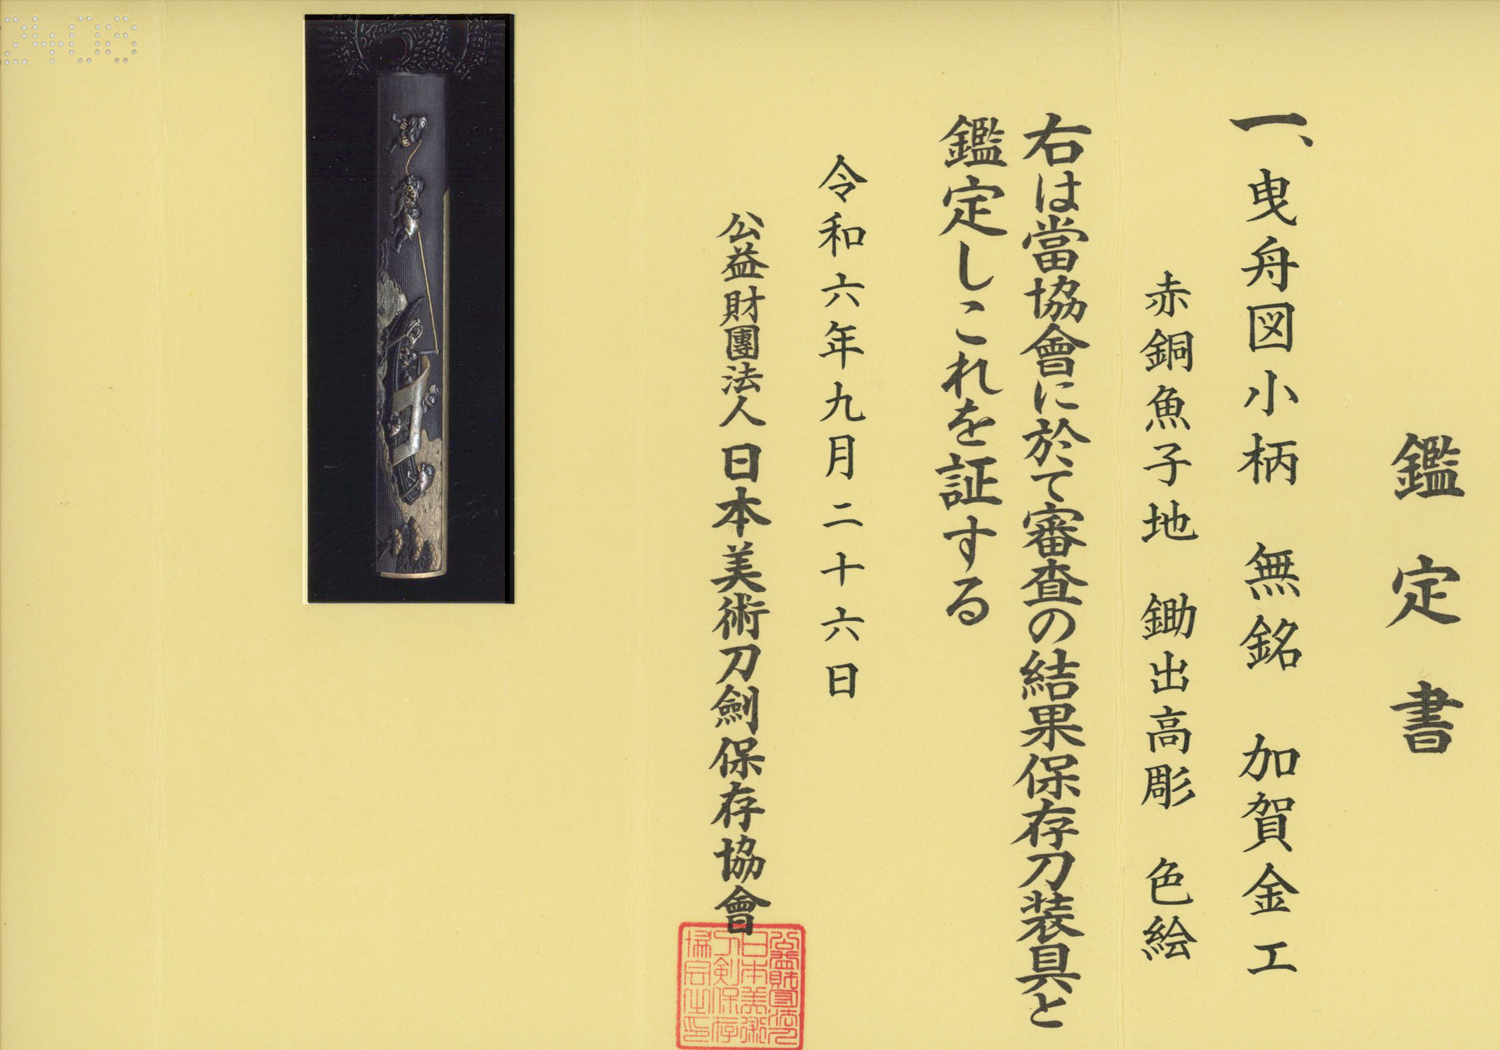 鑑定書
一、曳舟図小柄　無銘　加賀金工
赤銅魚子地　鋤出高彫　色絵
右は當協會に於て審査の結果保存刀装具と
鑑定しこれを証する
令和六年九月二十六日
公益財團法人日本美術刀劍保存協會